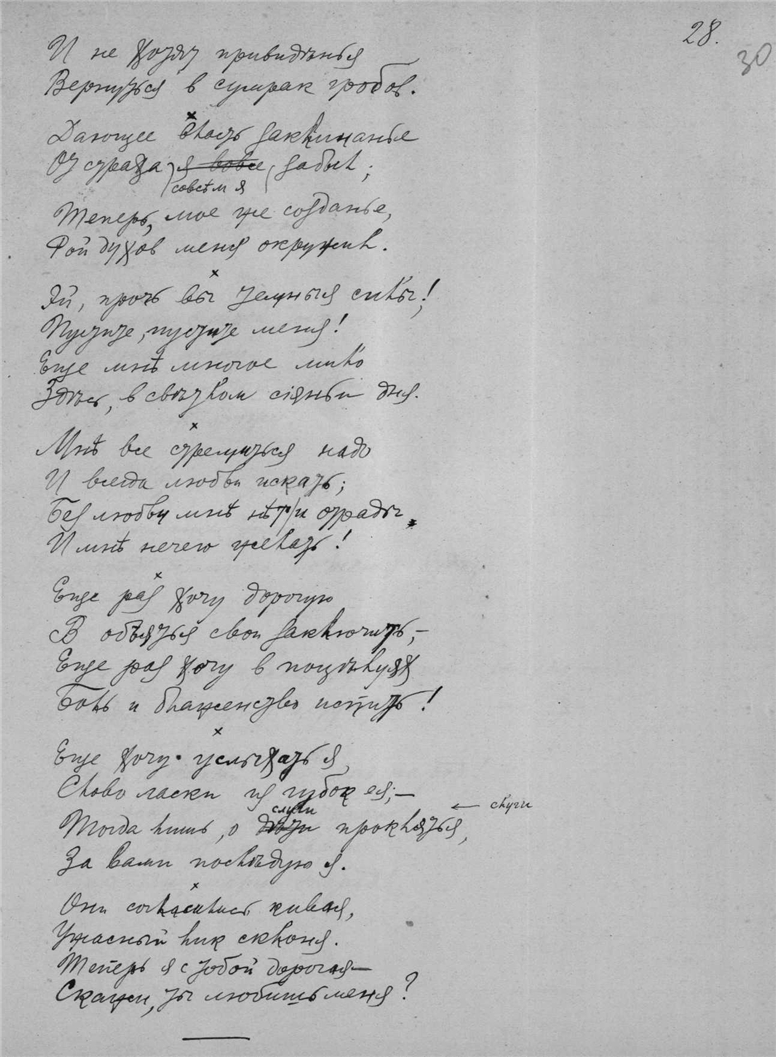 28.
30
И не хотят привидѣнья
Вернуться в сумрак гробов.
Дающее власть заклинанье
От страха я вовсе забыл;
совсѣм я
Теперь, мое же созданье,
Рой духов меня окружил.
Эй, прочь вы темныя силы!
Пустите, пустите меня!
Еще мнѣ многое мило
Здѣсь, в свѣтлом сіяньи дня.
Мнѣ все стремиться надо
И всегда любви искать;
Без любви мнѣ нѣт отрады
И мнѣ нечего желать!
Еще раз хочу дорогую
В объятья свои заключить,—
Еще раз хочу в поцѣлуях
Боль и блаженство испить!
Еще хочу услыхать я
Слово ласки из губок ея;—
Тогда лишь, о слуги проклятья, ← слуги
За вами послѣдую я.
Они согласились кивая,
Ужасный лик склоня.
Теперь я с тобой дорогая—
Скажи, ты любишь меня?